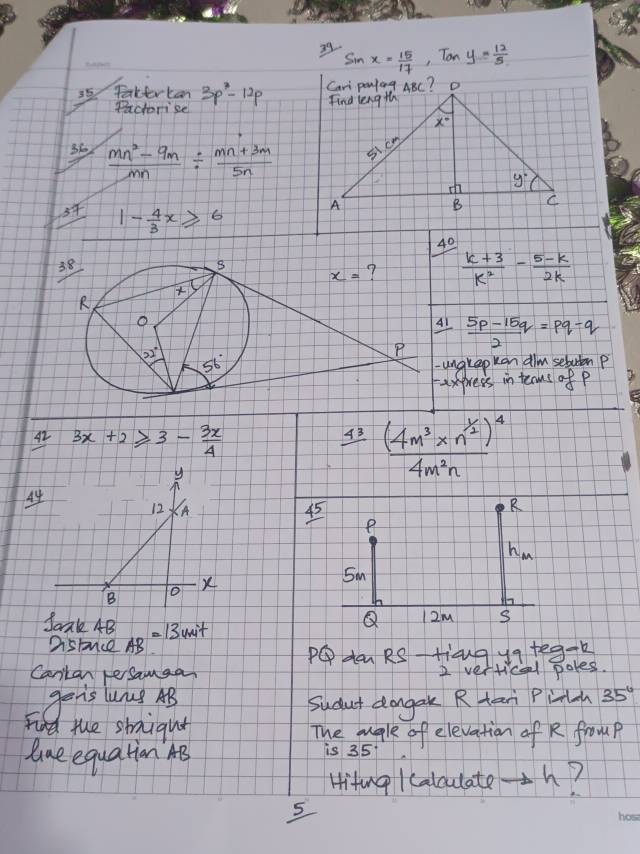 39 Sin x = 15/17 , Tan y = 12/5
Cari panjang ABC?
Find length
D
x°
51 cm
y°
A
B
C
35 Faktorkan 3p³ - 12p
Factorise
36 mn² - 9m / mn ÷ mn + 3m / 5n
37 1 - 4/3 x ≥ 6
38
x = ?
S
x
R
O
22°
56°
P
40 k + 3 / k² - 5 - k / 2k
41 5p - 15q / 2 = pq - q
- ungkapkan dlm sebutan P
- express in terms of P
42 3x + 2 ≥ 3 - 3x/4
43 (4m³ × n^1/2)^4 / 4m²n
44
y
12
A
B
O
x
Jarak AB
Distance AB = 13 unit
Carikan persamaan
garis lurus AB
Find the straight
line equation AB
45
R
P
5m
h m
Q
12m
S
PQ dan RS - tiang yg tegak
2 vertical poles.
Sudut dongak R dari P ialah 35°
The angle of elevation of R from P
is 35°
Hitung | Calculate → h ?
5